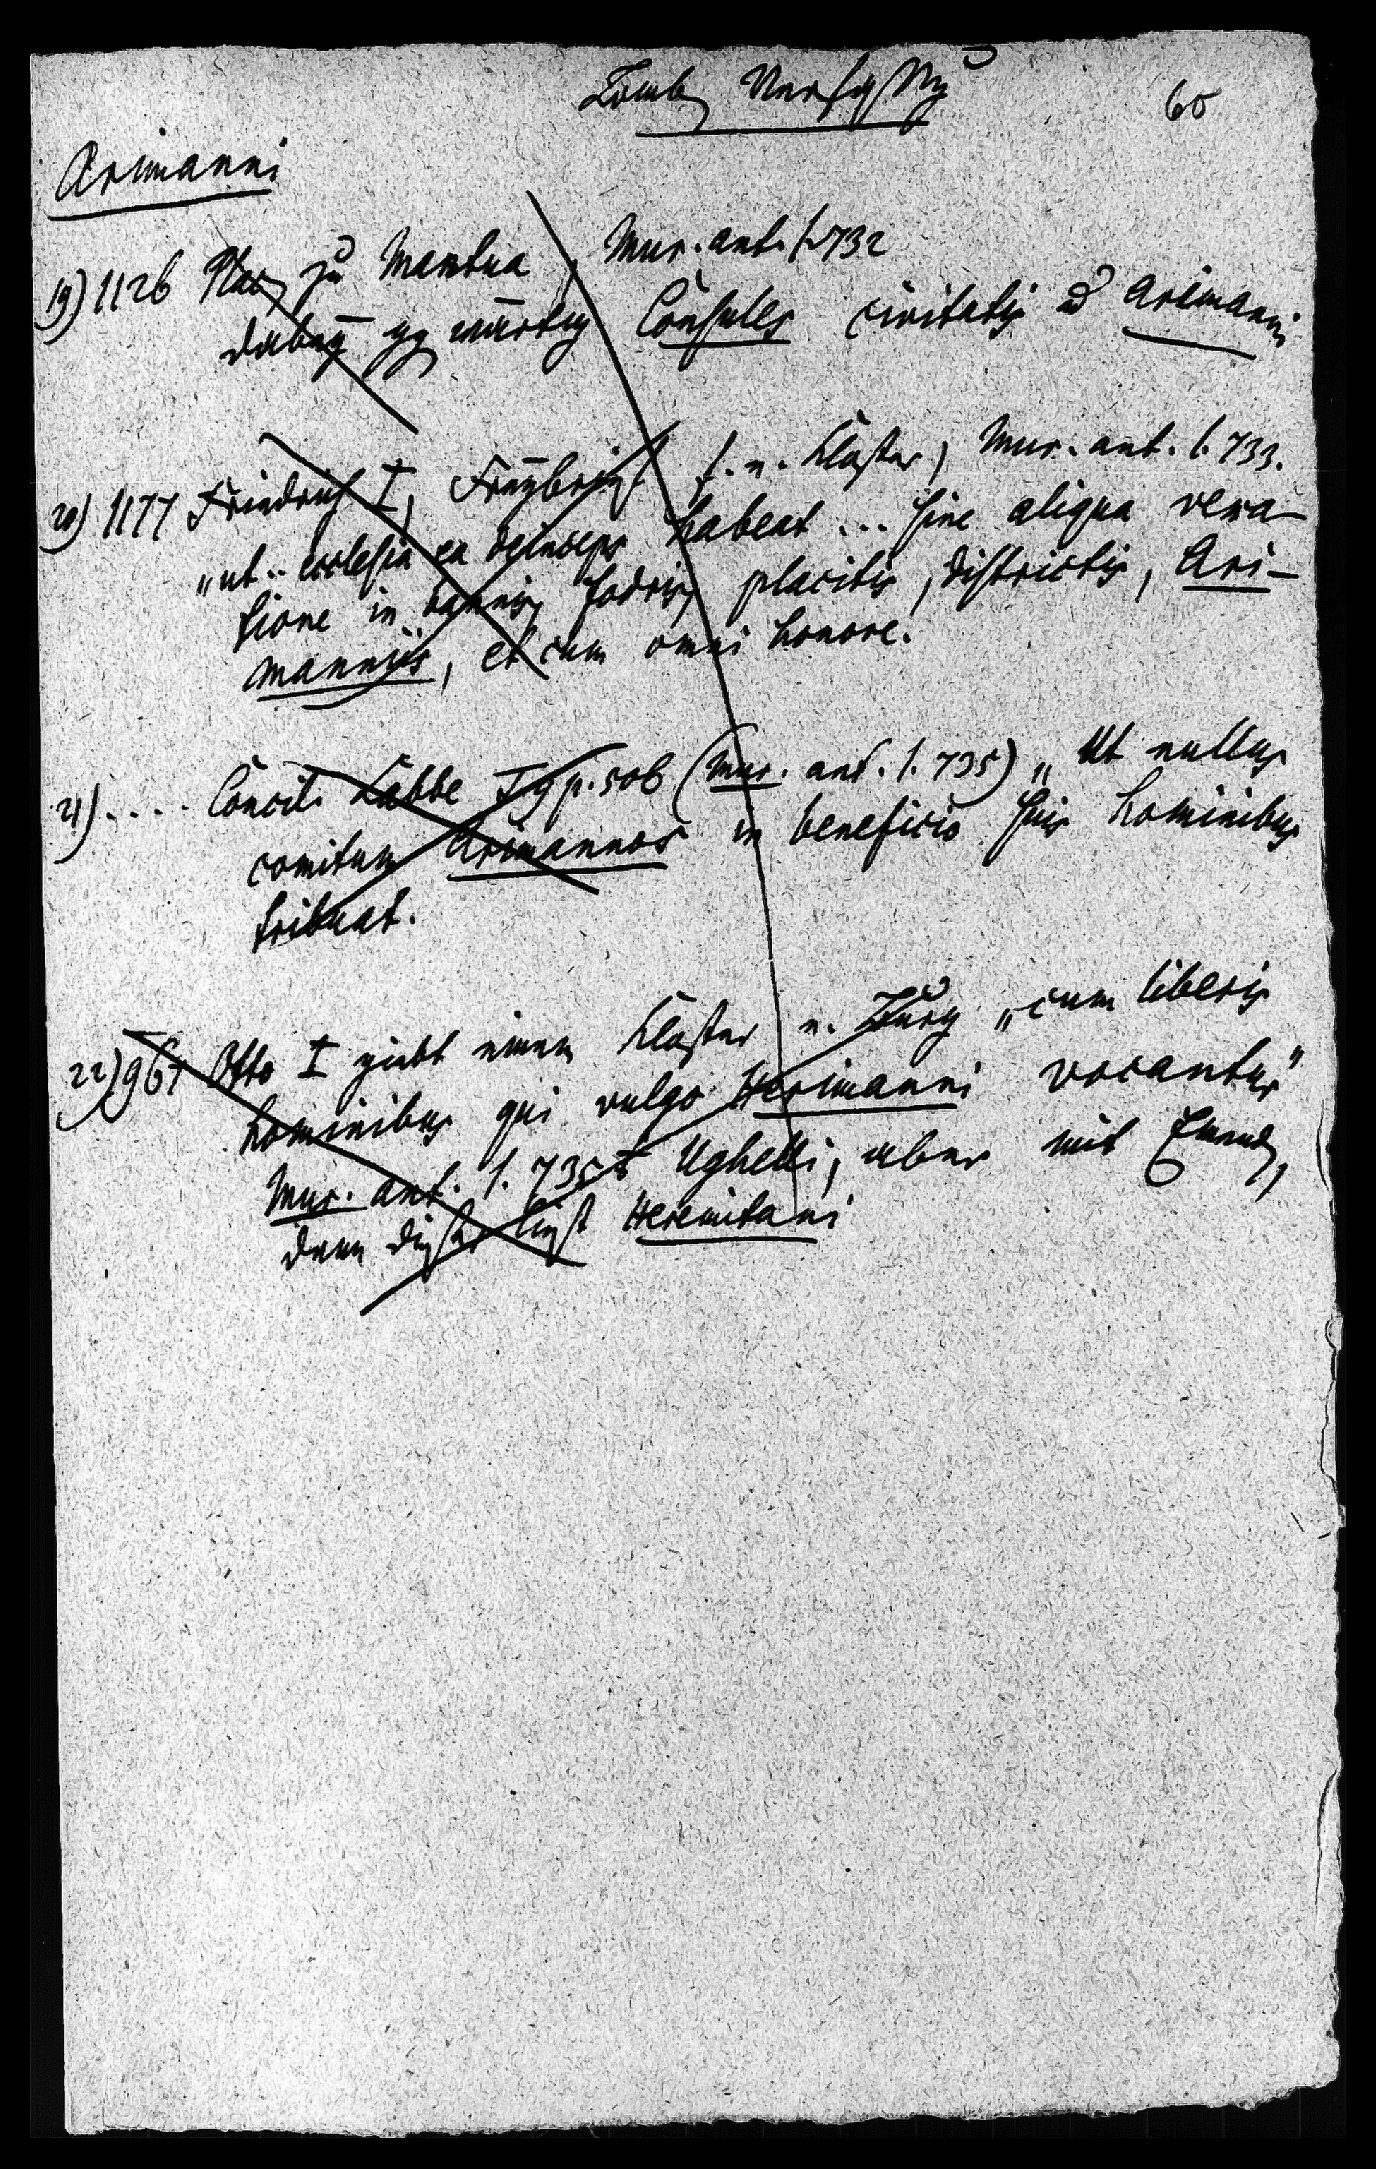 Lomb. Verfassung
60
Arimanni
19) 1126 Plac. zu Mantua, Mur. ant. 1. 732
dabey gegenwärtig Consules civitatis & Arimanni
20) 1177 Friedrich I, Freybrief f. e. Kloster, Mur. ant. 1. 733.
„ut .. ecclesia ea deinceps habeat ... sine aliqua vexa-
tione in bannis, fodris, placitis, districtis, Ari-
manniis, et cum omni honore.
21) .... Concil. Labbe T. 9 p. 506 (Mur. ant. 1. 735) „Ut nullus
comitum Arimannos in beneficio suis hominibus
tribuat.
22) 967 Otto I giebt einem Kloster e. Burg „cum liberis
hominibus qui vulgo Herimanni vocantur"
Mur. ant. 1. 735 Ughelli, aber mit Emend.,
denn dieser liest Heremitani